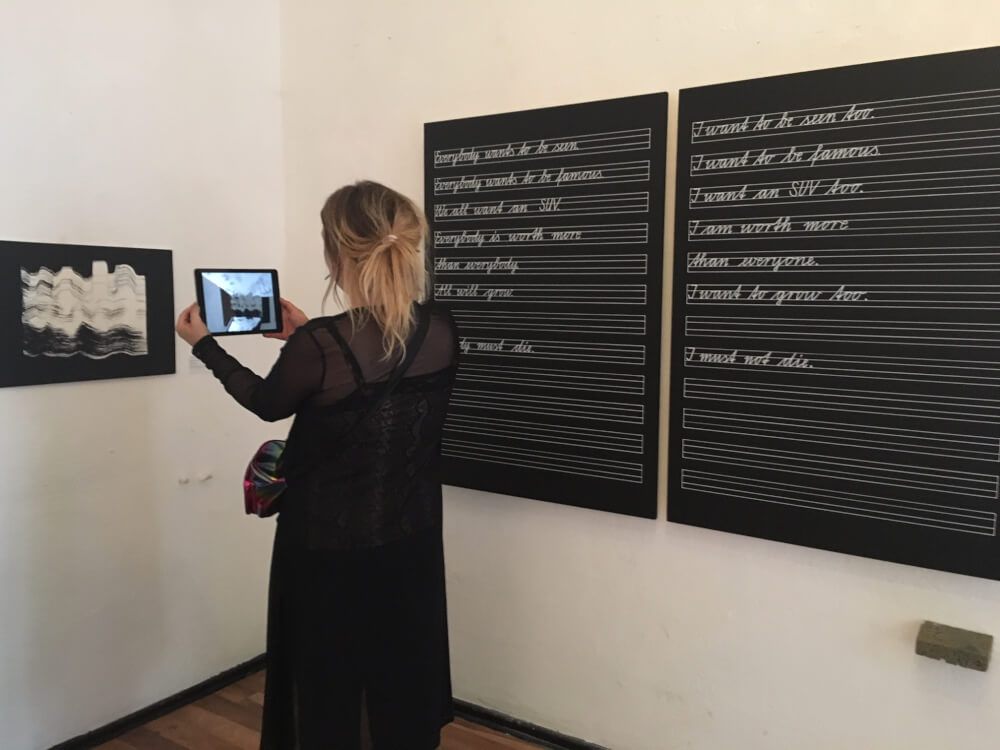 Everybody wants to be seen.
Everybody wants to be famous.
We all want an SUV.
Everybody is worth more
than everybody.
All will grow.
must die.
I want to be seen too.
I want to be famous.
I want an SUV too.
I am worth more
than everyone.
I want to grow too.
I must not die.